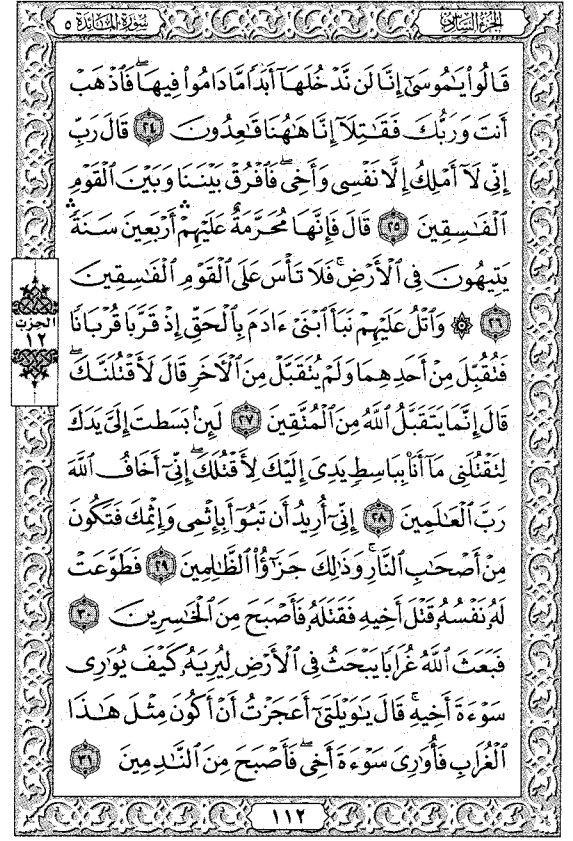 الجزء السادس
سورة المائدة ٥
قَالُوا۟ يَـٰمُوسَىٰٓ إِنَّا لَن نَّدْخُلَهَآ أَبَدًا مَّا دَامُوا۟ فِيهَا ۖ فَٱذْهَبْ
أَنتَ وَرَبُّكَ فَقَـٰتِلَآ إِنَّا هَـٰهُنَا قَـٰعِدُونَ ٢٤ قَالَ رَبِّ
إِنِّى لَآ أَمْلِكُ إِلَّا نَفْسِى وَأَخِى ۖ فَٱفْرُقْ بَيْنَنَا وَبَيْنَ ٱلْقَوْمِ
ٱلْفَـٰسِقِينَ ٢٥ قَالَ فَإِنَّهَا مُحَرَّمَةٌ عَلَيْهِمْ ۛ أَرْبَعِينَ سَنَةً ۛ
يَتِيهُونَ فِى ٱلْأَرْضِ ۚ فَلَا تَأْسَ عَلَى ٱلْقَوْمِ ٱلْفَـٰسِقِينَ
٢٦ ۞ وَٱتْلُ عَلَيْهِمْ نَبَأَ ٱبْنَىْ ءَادَمَ بِٱلْحَقِّ إِذْ قَرَّبَا قُرْبَانًا
فَتُقُبِّلَ مِنْ أَحَدِهِمَا وَلَمْ يُتَقَبَّلْ مِنَ ٱلْـَٔاخَرِ قَالَ لَأَقْتُلَنَّكَ ۖ
قَالَ إِنَّمَا يَتَقَبَّلُ ٱللَّهُ مِنَ ٱلْمُتَّقِينَ ٢٧ لَئِنۢ بَسَطتَ إِلَىَّ يَدَكَ
لِتَقْتُلَنِى مَآ أَنَا۠ بِبَاسِطٍ يَدِىَ إِلَيْكَ لِأَقْتُلَكَ ۖ إِنِّىٓ أَخَافُ ٱللَّهَ
رَبَّ ٱلْعَـٰلَمِينَ ٢٨ إِنِّىٓ أُرِيدُ أَن تَبُوٓأَ بِإِثْمِى وَإِثْمِكَ فَتَكُونَ
مِنْ أَصْحَـٰبِ ٱلنَّارِ ۚ وَذَٰلِكَ جَزَٰٓؤُا۟ ٱلظَّـٰلِمِينَ ٢٩ فَطَوَّعَتْ
لَهُۥ نَفْسُهُۥ قَتْلَ أَخِيهِ فَقَتَلَهُۥ فَأَصْبَحَ مِنَ ٱلْخَـٰسِرِينَ ٣٠
فَبَعَثَ ٱللَّهُ غُرَابًا يَبْحَثُ فِى ٱلْأَرْضِ لِيُرِيَهُۥ كَيْفَ يُوَٰرِى
سَوْءَةَ أَخِيهِ ۚ قَالَ يَـٰوَيْلَتَىٰٓ أَعَجَزْتُ أَنْ أَكُونَ مِثْلَ هَـٰذَا
ٱلْغُرَابِ فَأُوَٰرِىَ سَوْءَةَ أَخِى ۖ فَأَصْبَحَ مِنَ ٱلنَّـٰدِمِينَ ٣١
الحزب
١٢
١١٢